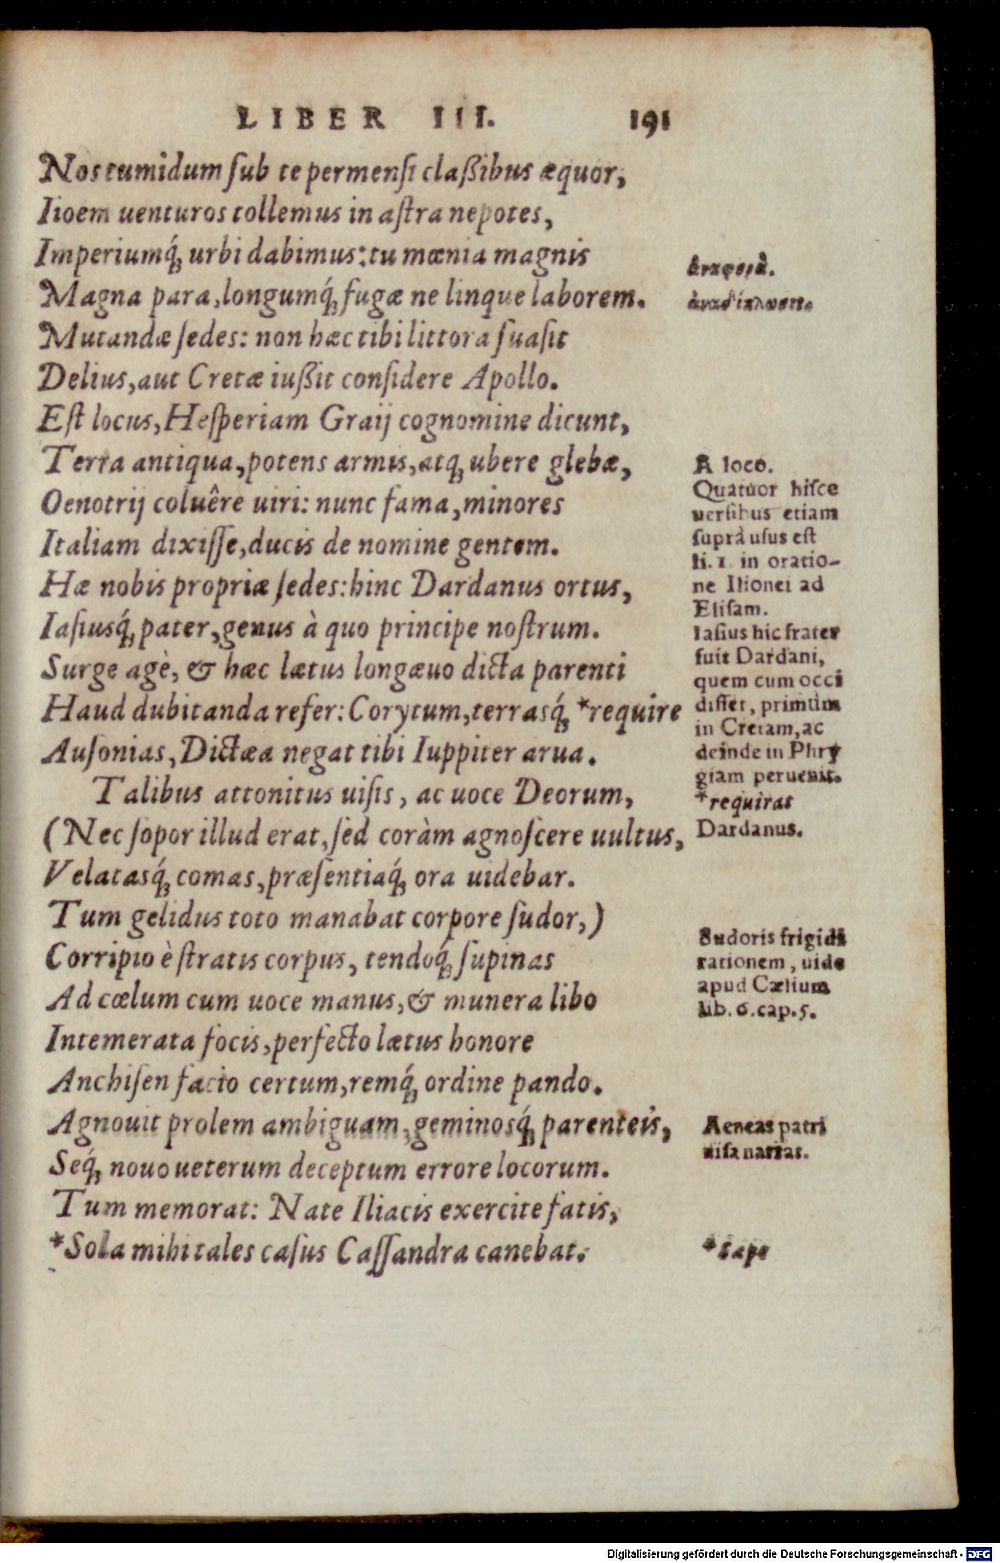 LIBER III. 191
Nos tumidum ſub te permenſi claßibus æquor,
Iidem uenturos tollemus in aſtra nepotes,
Imperiumq́; urbi dabimus: tu mœnia magnis
Magna para, longumq́; fugæ ne linque laborem.
Mutandæ ſedes: non hæc tibi littora ſuaſit
Delius, aut Cretæ iußit conſidere Apollo.
Eſt locus, Heſperiam Graij cognomine dicunt,
Terra antiqua, potens armis, atq; ubere glebæ,
Oenotrij coluêre uiri: nunc fama, minores
Italiam dixiſſe, ducis de nomine gentem.
Hæ nobis propriæ ſedes: hinc Dardanus ortus,
Iaſiusq́; pater, genus à quo principe noſtrum.
Surge agè, & hæc lætus longæuo dicta parenti
Haud dubitanda refer: Corytum, terrasq́; *require
Auſonias, Dictæa negat tibi Iuppiter arua.
Talibus attonitus uiſis, ac uoce Deorum,
(Nec ſopor illud erat, ſed coràm agnoſcere uultus,
Velatasq́; comas, præſentiaq́; ora uidebar.
Tum gelidus toto manabat corpore ſudor,)
Corripio è ſtratis corpus, tendoq́; ſupinas
Ad cœlum cum uoce manus, & munera libo
Intemerata focis, perfecto lætus honore
Anchiſen facio certum, remq́; ordine pando.
Agnouit prolem ambiguam, geminosq́; parenteis,
Seq́; nouo ueterum deceptum errore locorum.
Tum memorat: Nate Iliacis exercite fatis,
*Sola mihi tales caſus Caſſandra canebat.
ἀναφορὰ.
ἀναδίπλωσις.
A loco.
Quatuor hiſce
uerſibus etiam
ſuprà uſus eſt
li. 1. in oratio-
ne Ilionei ad
Eliſam.
Iaſius hic frater
fuit Dardani,
quem cum occi
diſſet, primùm
in Cretam, ac
deinde in Phry
giam peruenit.
*requirat
Dardanus.
Sudoris frigidi
rationem, uide
apud Cælium
lib. 6. cap. 5.
Aeneas patri
uiſa narrat.
*Sæpe
Digitalisierung gefördert durch die Deutsche Forschungsgemeinschaft - DFG